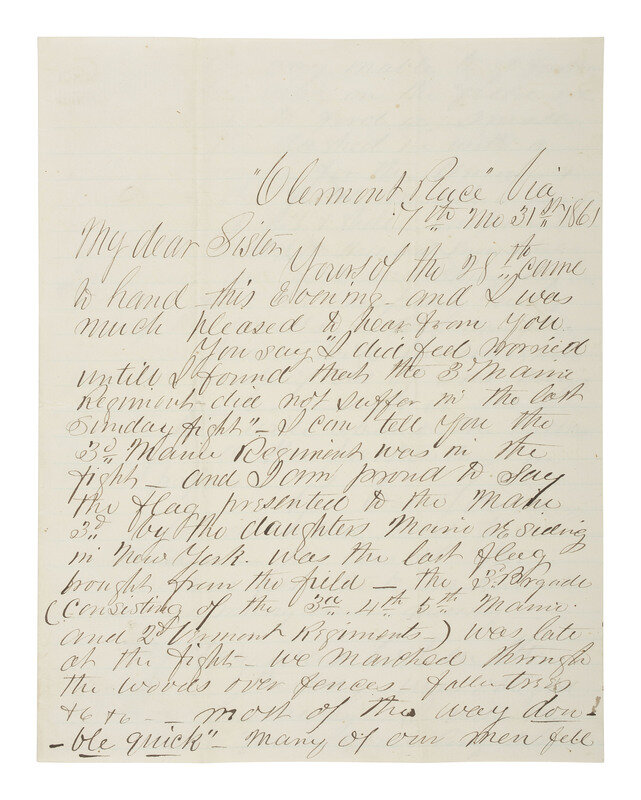 "Clermont Place" Via
7th Mo 31st 1861
My dear Sister
Yours of the 28th came
to hand this Evening - and I was
much pleased to hear from you
You say "I did feel worried
untill I found that the 3d Maine
Regiment did not suffer in the last
Sunday fight" - I can tell you the
3d Maine Regiment was in the
fight - and I am proud to say
the flag presented to the Maine
3d by the daughters Maine residing
in New York. was the last flag
brought from the field - the 3d Brigade
(Consisting of the 3d 4th 5th Maine
and 2d Vermont Regiments -) was late
at the fight - we marched through
the woods over fences - fallen trees
&c &c - - most of the way dou-
-ble quick" - many of our men fell